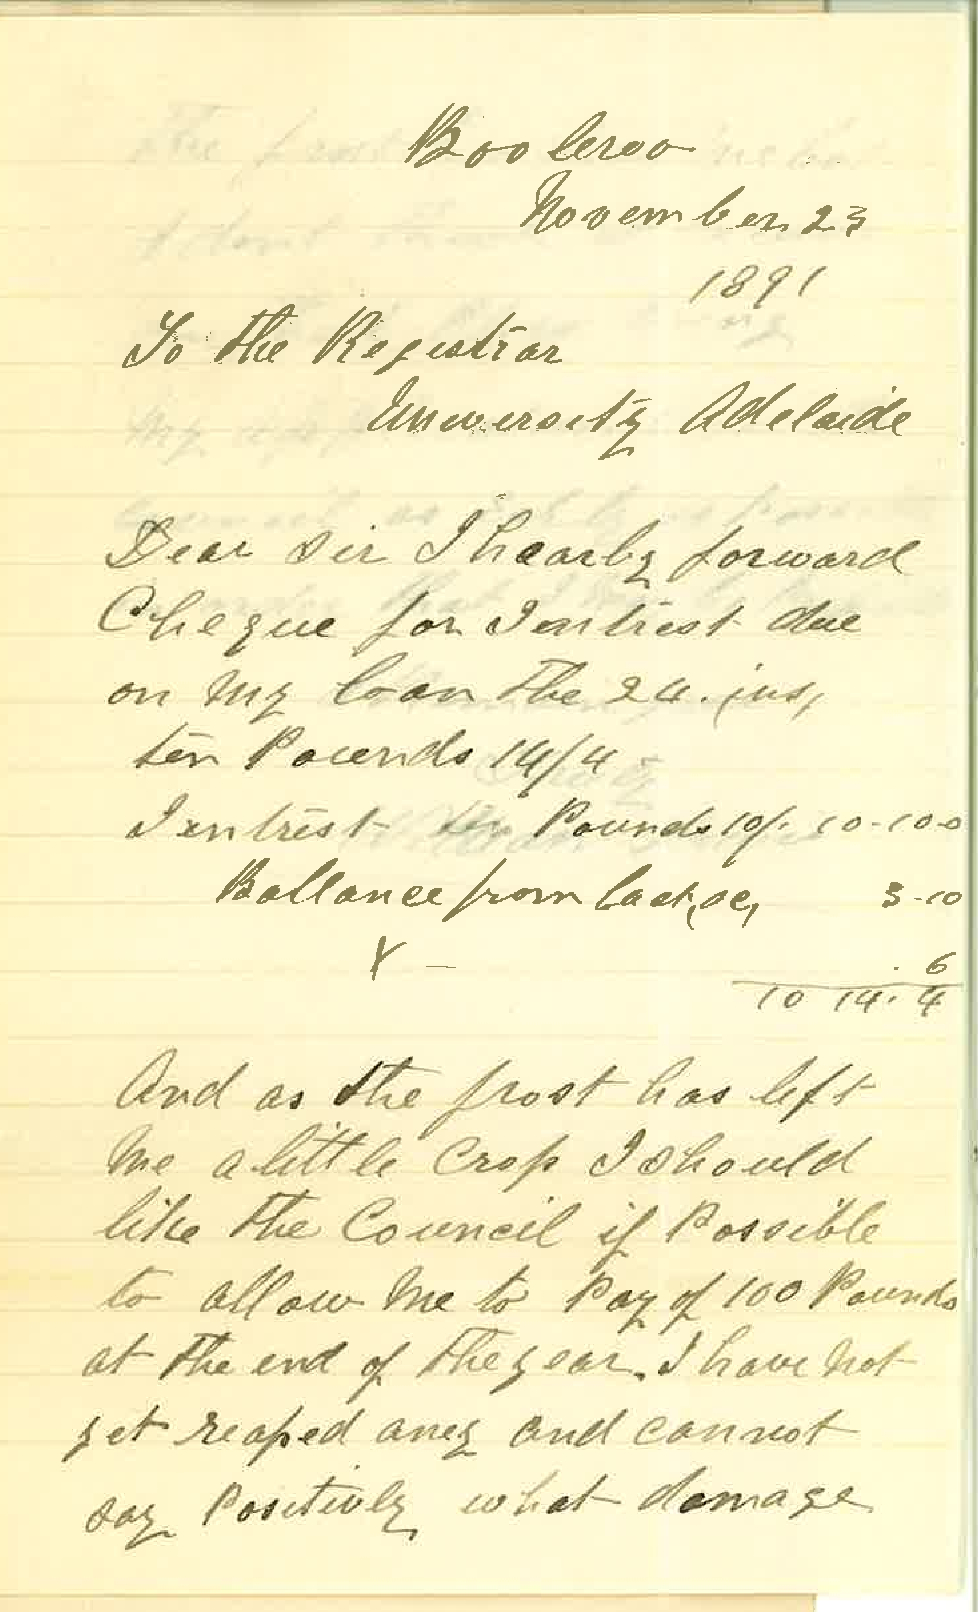 Booleroo
November 23
1891
To the Registrar
University Adelaide
Dear Sir I hearby forward
Cheque for Interest due
on My loan the 24. ins,
ten Pounds 14/4
Intrest ten Pounds 10/. 10-10-0
Ballance from last, 3-10
X - . 6
10 14. 4
And as the frost has left
Me a little Crop I should
like the Council if Possible
to allow Me to Pay of 100 Pounds
at the end of the year. I have Not
yet reaped any and cannot
say Positivly what damage